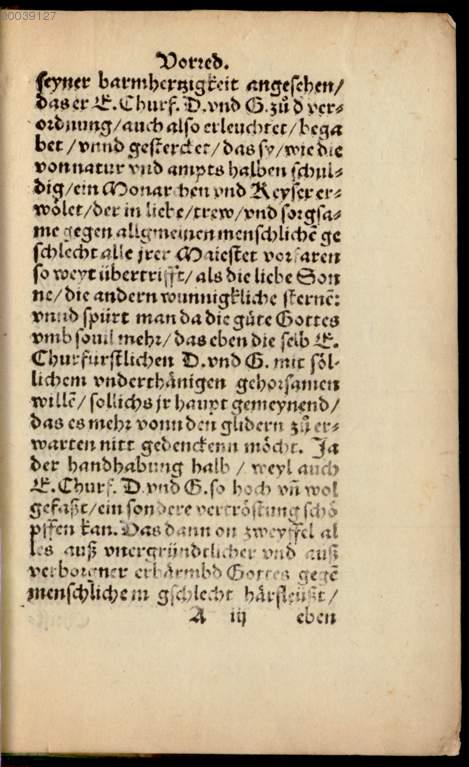 00039127
Vorred.
seyner barmhertzigkeit angesehen/
das er E. Churf. D. vnd G. zů d ver⸗
ordnung/ auch also erleuchtet/ bega
bet/ vnnd gestercket/ das sy/ wie die
von natur vnd ampts halben schul⸗
dig/ ein Monarchen vnd Keyser er⸗
wölet/ der in liebe/ trew/ vnd sorgsa⸗
me gegen allgmeinen menschlichē ge
schlecht alle jrer Maiestet vorfaren
so weyt übertrifft/ als die liebe Son
ne/ die andern wunnigkliche sternē:
vnnd spürt man da die güte Gottes
vmb souil mehr/ das eben die selb E.
Churfürstlichen D. vnd G. mit söl⸗
lichem vnderthänigen gehorsamen
willē/ sollichs jr haupt gemeynend/
das es mehr vonn den glidern zů er⸗
warten nitt gedenckenn möcht. Ja
der handhabung halb / weyl auch
E. Churf. D. vnd G. so hoch vñ wol
gefaßt/ ein sondere vertröstung schö
pffen kan. Das dann on zweyffel al
les auß vnergründtlicher vnd auß
verborgner erbärmbd Gottes gegē
menschlichem gschlecht härfleüßt/
A iij eben